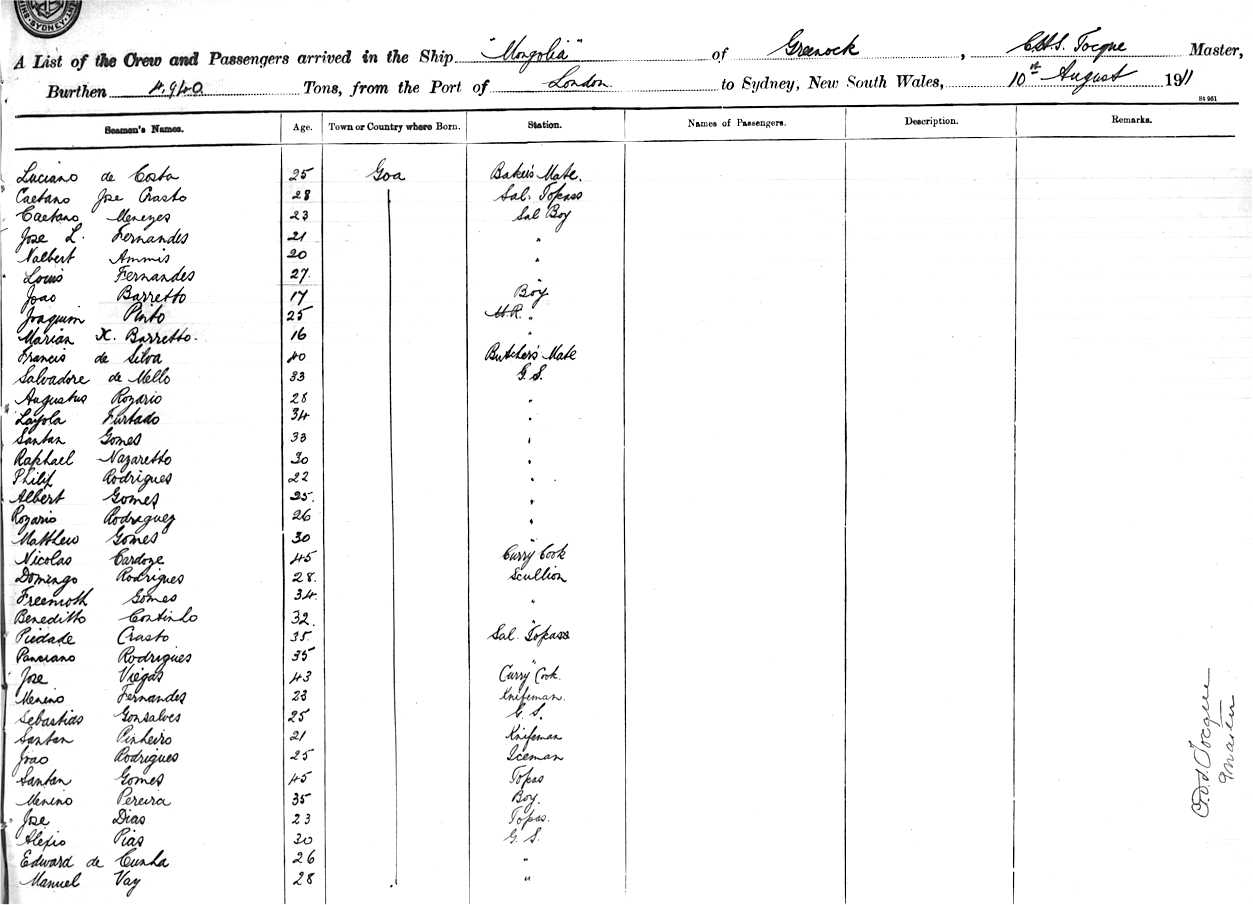 SYDNEY
A List of the Crew and Passengers arrived in the Ship "Mongolia" of Greenock, Master,
Burthen 4940 Tons, from the Port of London to Sydney, New South Wales, 10th August 1911
Seamen's Names. Age. Town or Country where Born. Station. Names of Passengers. Description. Remarks.
Luciano de Costa 25 Goa Baker's Mate.
Caetano Jose Crasto 28 Sal. Topass
Caetano Menezes 23 Sal Boy
Jose L. Fernandes 21 "
Nalbert Ammis 20 "
Louis Fernandes 27 "
Joao Barretto 17 Boy
Joaquim Pinto 25 "
Marian X. Barretto. 16 "
Francis de Silva 40 Butcher's Mate
Salvadore de Mello 33 G.S.
Augustus Rozario 28 "
Layola Furtado 34 "
Santan Gomes 33 "
Raphael Nazaretto 30 "
Philip Rodrigues 22 "
Albert Gomes 25. "
Rozario Rodriguez 26 "
Matthew Gomes 30 "
Nicolas Cardoze 45 Curry Cook
Domingo Rodrigues 28. Scullion
Gomes 34. "
Beneditto Continho 32. "
Piedade Crasto 35 Sal. Topass
Rodrigues 35 "
Jose Viegas 43 Curry Cook.
Menino Fernandes 23 Knifeman.
Sebastias Gonsalves 25 G.S.
Santan Pinheiro 21 Knifeman
Joao Rodrigues 25 Iceman
Santan Gomes 45 Topas
Menino Pereira 35 Boy.
Jose Dias 23 Topas.
Alefio Pias 30 G.S.
Edward de Cunha 26 "
Manuel Vay 28 "
Tocque
Master